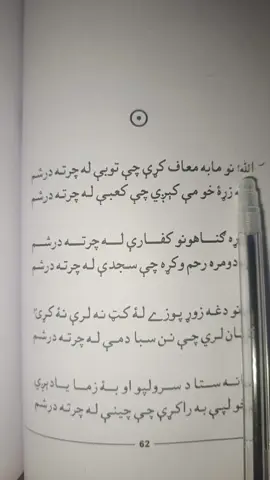 الله نو ما به معاف کړې چې توبې له چرته درشم
زړۀ خو مې کېږي چې کعبې له چرته درشم
ګناهونو کفارې له چرته درشم
دومره رحم وکړه چې سجدې له چرته درشم
دغه زوړ پوزے لۀ کټ نه لرې نۀ کړې
لرې چې نن سبا دمې له چرته درشم
ستا د سرولپو او بۀ زما يادېږي
خو لپې به راکړې چې چينې له چرته درشم
62